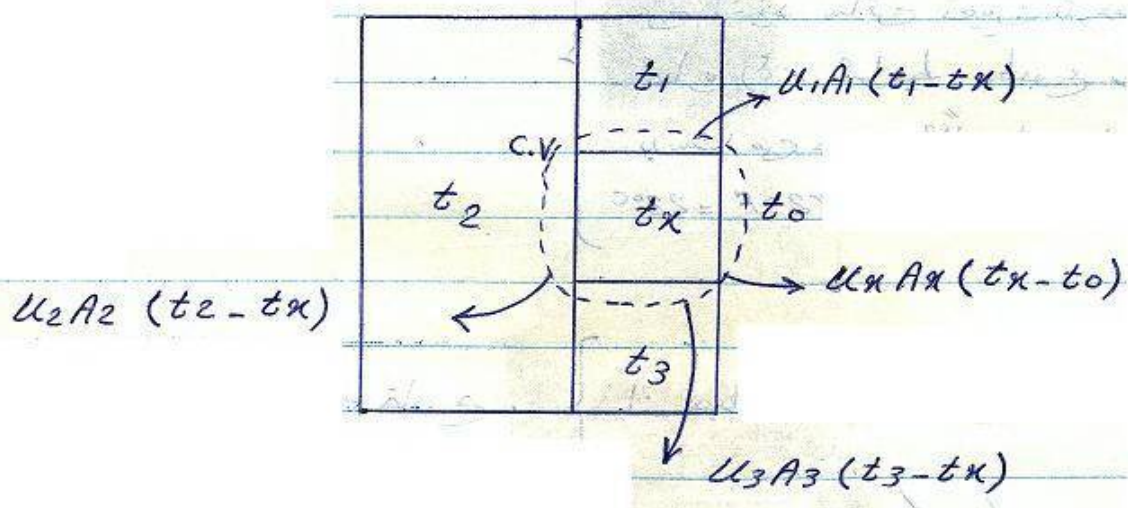 t₁
U₁A₁(t₁-tx)
C.V
t₂
tx
t₀
UxAx(tx-t₀)
U₂A₂ (t₂-tx)
t₃
U₃A₃(t₃-tx)